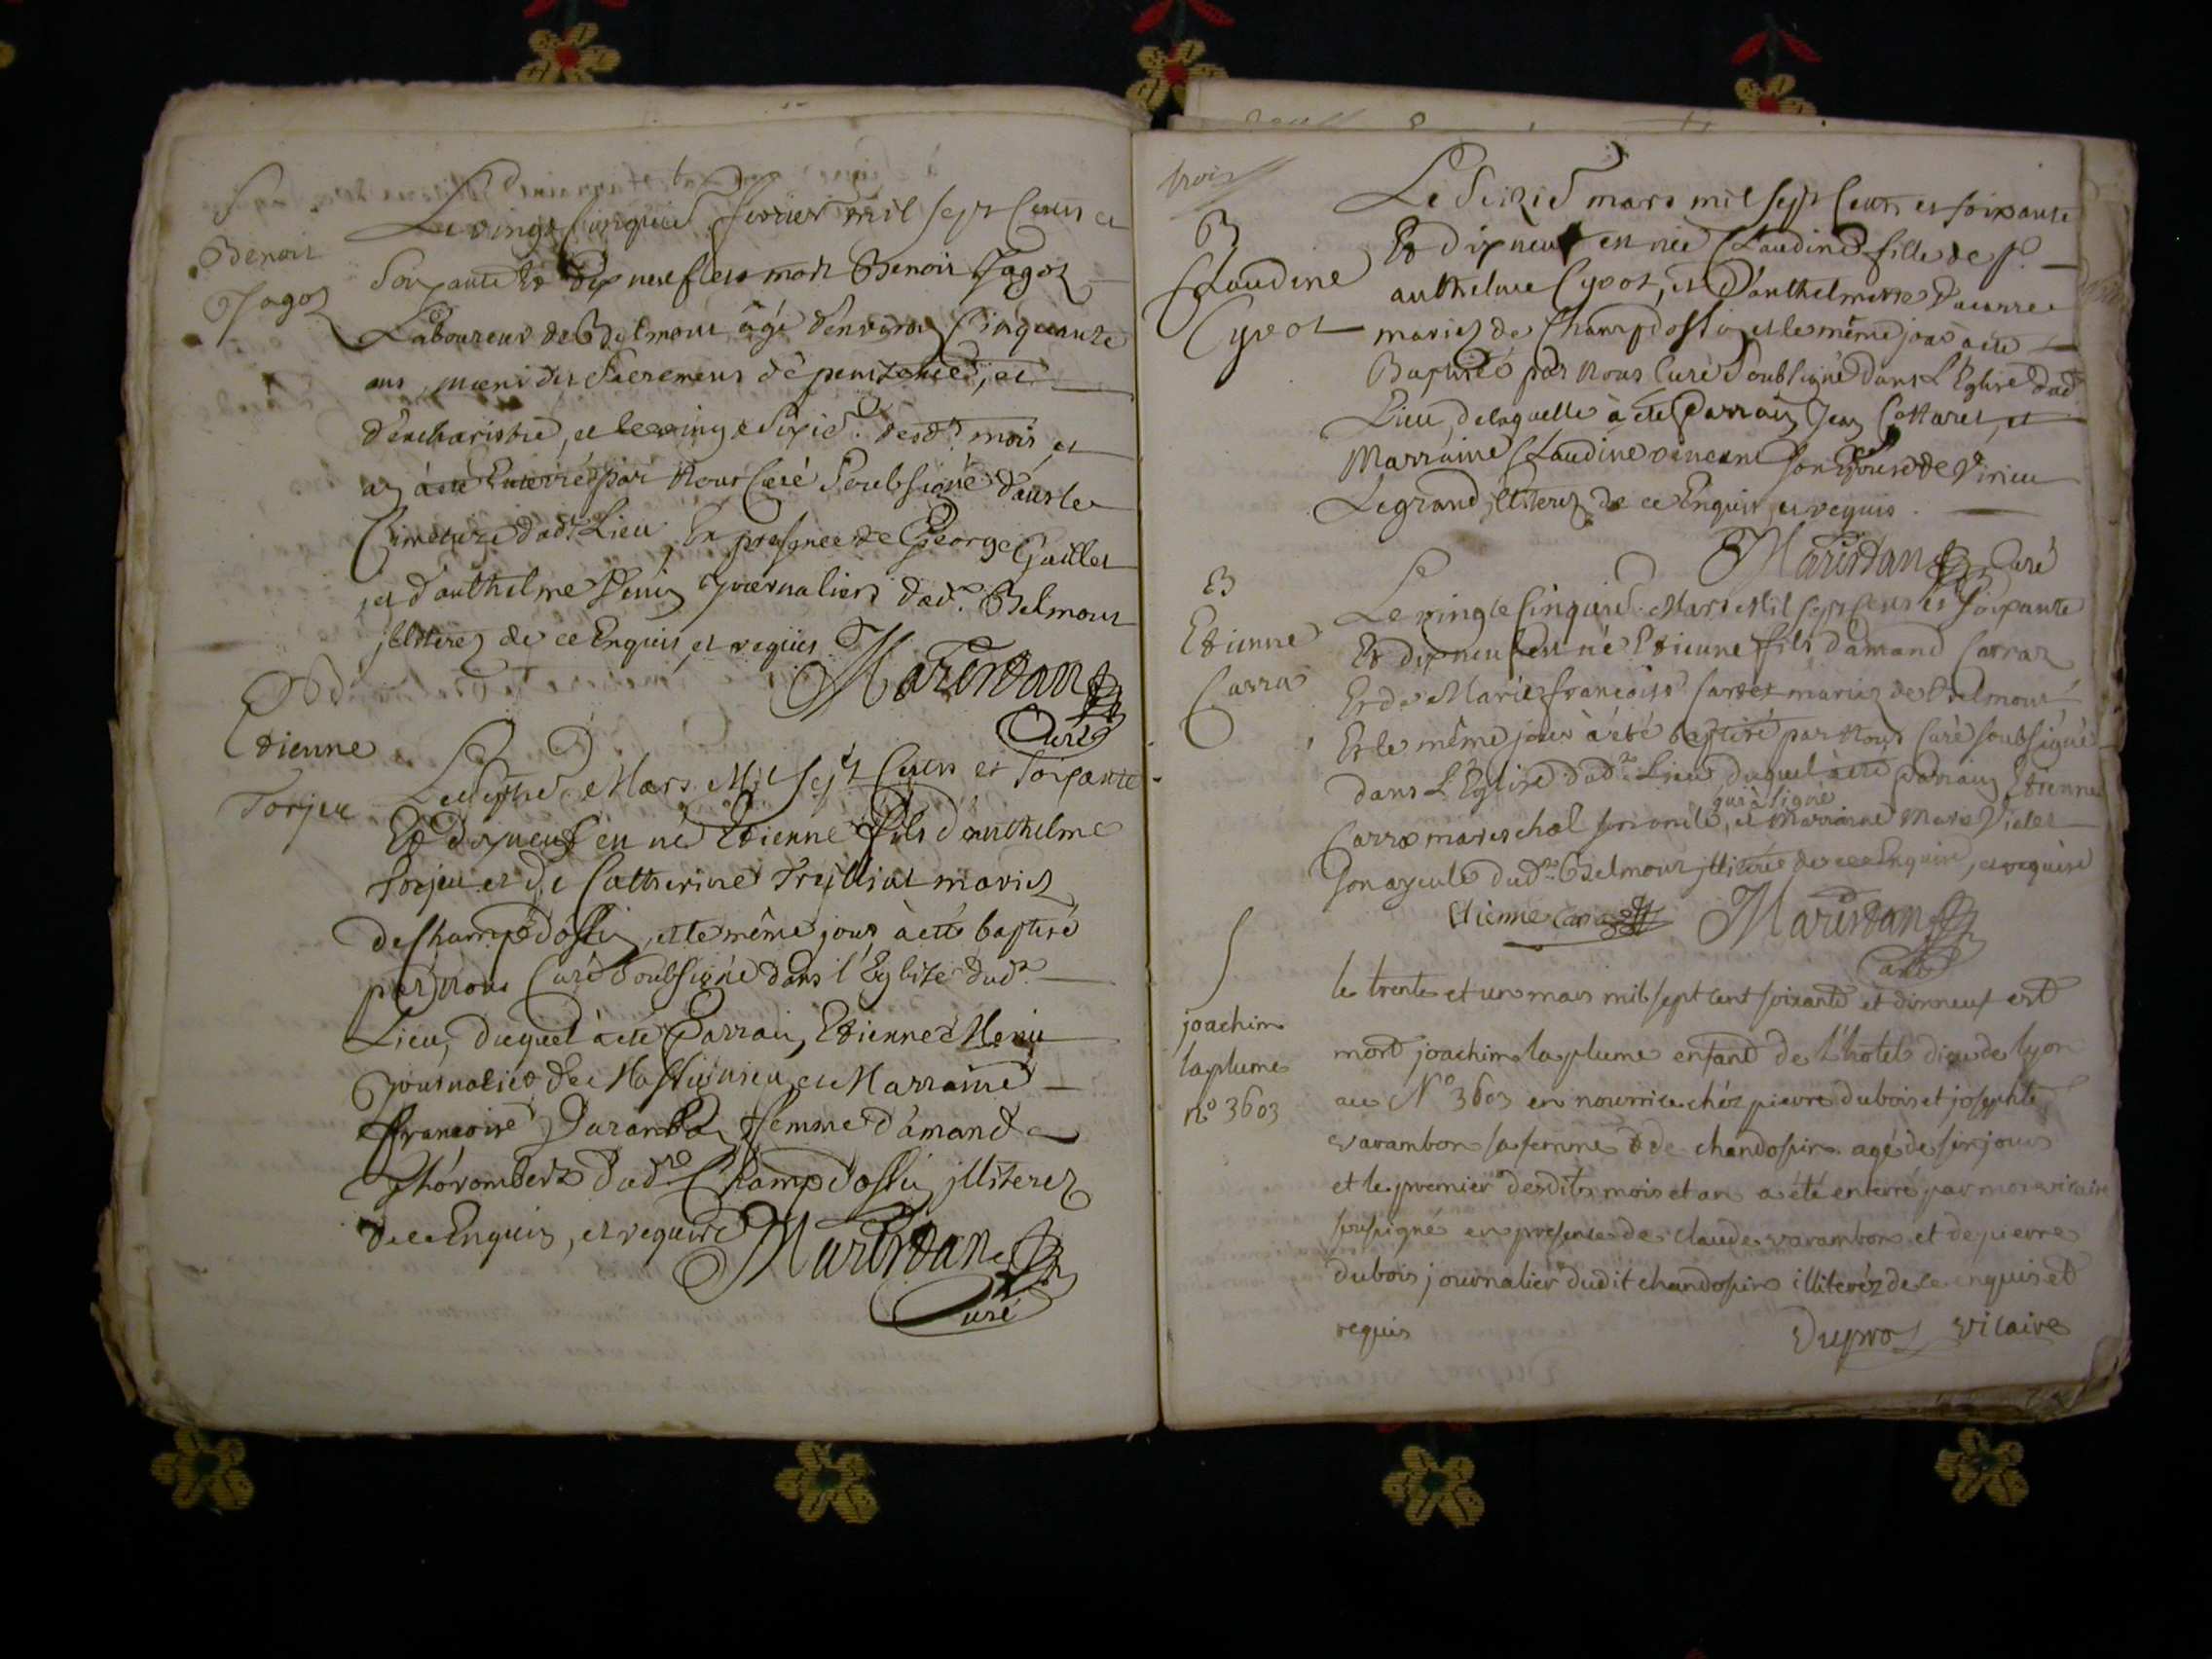 S
Benoit
Jagoz
Le vingt Cinquie. fevrier mil sept Cents et
Soixante Et dix neuf est mort Benoit Jagoz
Laboureur de Belmont âgé d'environ Cinquante
ans, muni des Sacremens de penitence, et
d'eucharistie, et le vingt Sixie. desd. mois et
an à été Enterré par Nous Curé Soubsigné dans le
Cimetiere dud. Lieu, En presence de George Guillet
et d'anthelme journaliers dud. Belmont
jlliterez de ce Enquis, et requis.
Maristan
Curé
B
Etienne
Torjeu
Mars Mil Sept Cents et Soixante
Et dix neuf est né Etienne fils d'anthelme
Torjeu et de Catherine mariez
de Champdossin, et le même jour à été baptisé
par Nous Curé Soubsigné dans l'Eglise dud.
Lieu, duquel à été Parrain Etienne
journalier de et Marraine
françoise femme d'amand
dud. Champdossin jlliterez
de ce Enquis, et requis
Maristan
Curé
trois
B
Claudine
Cyvot
Le Seizie. mars mil sept Cents et soixante
Et dix neuf est née Claudine fille de
anthelme Cyvot, et d'anthelmette
mariez de Champdossin et le même jour à été
Baptisée par Nous Curé Soubsigné dans l'Eglise dud.
Lieu, de laquelle à été Parrain Jean Cottaret, et
Marraine Claudine son Epouse de Virieu
Legrand jlliterez de ce Enquis et requis.
Maristan Curé
B
Etienne
Carra
Le vingt Cinquie. Mars Mil sept cents et Soixante
Et dix neuf est né Etienne fils d'amand Carraz
Et de Marie françoise mariez de Belmont
Et le même jour à été baptisé par Nous Curé soubsigné
dans l'Eglise dud. Lieu duquel à été parrain Etienne
qui à signé
Carra mareschal son oncle, et Marraine Marie
Son ayeule dud. Belmont jlliterée de ce Enquise, et requise
Etienne Cara
Maristan
Curé
S
joachim
laplume
n.º 3603
le trente et un mars mil sept cent soixante et dixneuf est
mort joachim laplume enfant de l'hotel dieu de lyon
au N.º 3603 en nourrice chéz pierre dubois et josephte
varambon sa femme de chandossin agé de six jours
et le premier desdits mois et an a été enterré par moi vicaire
soussigné en presence de claude varambon et de pierre
dubois journalier dudit chandossin illiteréz de ce enquis et
requis
Dupro vicaire